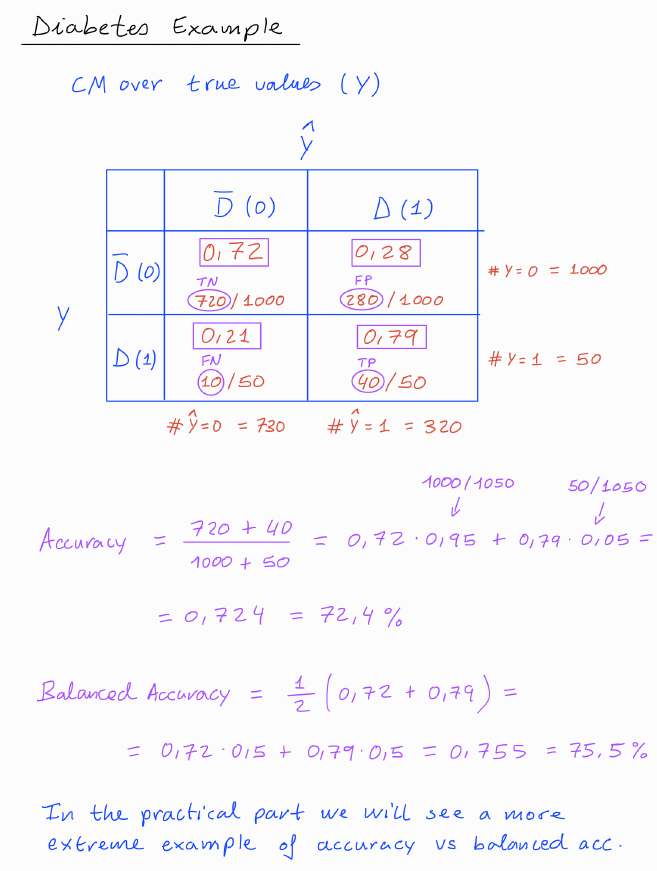 Diabetes Example
CM over true values (Y)
Ŷ
D̅ (0) D (1)
D̅ (0) 0,72 0,28
TN FP
720/1000 280/1000 # Y=0 = 1000
Y
D (1) 0,21 0,79
FN TP
10/50 40/50 # Y=1 = 50
# Ŷ=0 = 730 # Ŷ=1 = 320
1000/1050 50/1050
Accuracy = (720 + 40)/(1000 + 50) = 0,72 · 0,95 + 0,79 · 0,05 =
= 0,724 = 72,4 %
Balanced Accuracy = 1/2 (0,72 + 0,79) =
= 0,72 · 0,5 + 0,79 · 0,5 = 0,755 = 75.5 %
In the practical part we will see a more
extreme example of accuracy vs balanced acc.